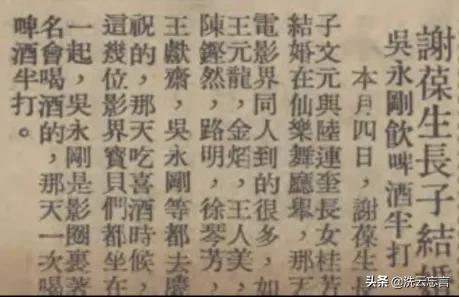 謝葆生長子結
吳永剛飲啤酒半打
本月四日，謝葆生長
子文元與陸連奎長女桂芳
結婚在仙樂舞廳舉，那天
電影界同人到的很多，如
王元龍，金焰，王人美，
陳鏗然，路明，徐琴芳，
王獻齋，吳永剛等都去慶
祝的，那天吃喜酒時候
這幾位影界寶貝們都坐在
一起，吳永剛是影圈裏著
名會喝酒的，那天一次喝
啤酒半打。
头条 @洗云忘言